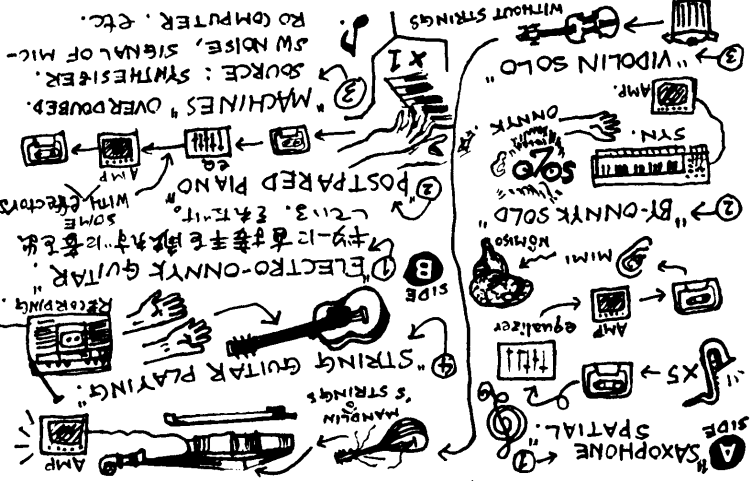 SIDE A
① "SAXOPHONE
SPATIAL."
×5
equalizer
AMP
MIMI
NOMISO
② "BY-ONNYK SOLO"
SYN.
ONNYK
AMP.
③ "VIDOLIN SOLO"
WITHOUT STRINGS
MANDOLIN
'S STRINGS
AMP
④ "STRING GUITAR PLAYING."
RECORDING.
SIDE B
① "ELECTRO-ONNYK GUITAR"
ギターに直接手を触れずに音を出
している。それだけ。
② "POSTPARED PIANO"
WITH SOME EFFECTORS
EQ
AMP
×1
③ "MACHINES" OVERDOUBED.
SOURCE: SYNTHESISER.
SW NOISE, SIGNAL OF MIC-
RO COMPUTER. etc.